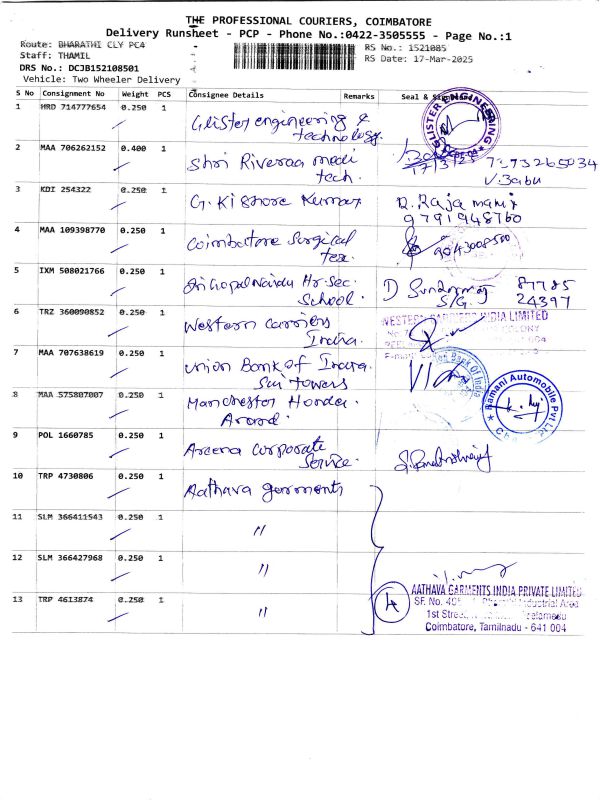 THE PROFESSIONAL COURIERS, COIMBATORE
Delivery Runsheet - PCP - Phone No.:0422-3505555 - Page No.:1
Route: BHARATHI CLY PC4
RS No.: 1521085
Staff: THAMIL
RS Date: 17-Mar-2025
DRS No.: DCJB152108501
Vehicle: Two Wheeler Delivery
S No Consignment No Weight PCS Consignee Details Remarks Seal &
1 HRD 714777654 0.250 1 Glister engineering & technology.
GLISTER ENGINEERING
2 MAA 706262152 0.400 1 Shri Riveraa medi tech.
17/3/25 7373265034
V. Babu
3 KDI 254322 0.250 1 G. Kishore Kumar
R. Raja mani
9791948760
4 MAA 109398770 0.250 1 Coimbatore Surgical tex.
9043008500
5 IXM 508021766 0.250 1 Sri Gopal Naidu Hr. Sec. School.
D Sundarraj 87785
S/G. 24397
6 TRZ 360090852 0.250 1 Western carriers India.
WESTERN CARRIERS INDIA LIMITED
7 MAA 707638619 0.250 1 Union Bank of India. Sai towers
Bank Of India
8 MAA 575807007 0.250 1 Manchester Honda. Avard.
Ramani Automobile Pvt Ltd
9 POL 1660785 0.250 1 Areena Corporate Service.
10 TRP 4730806 0.250 1 Aathava garments
11 SLM 366411543 0.250 1 "
12 SLM 366427968 0.250 1 "
13 TRP 4613874 0.250 1 "
4
AATHAVA GARMENTS INDIA PRIVATE LIMITED
SF. No. Industrial Area
1st Street,
Coimbatore, Tamilnadu - 641 004